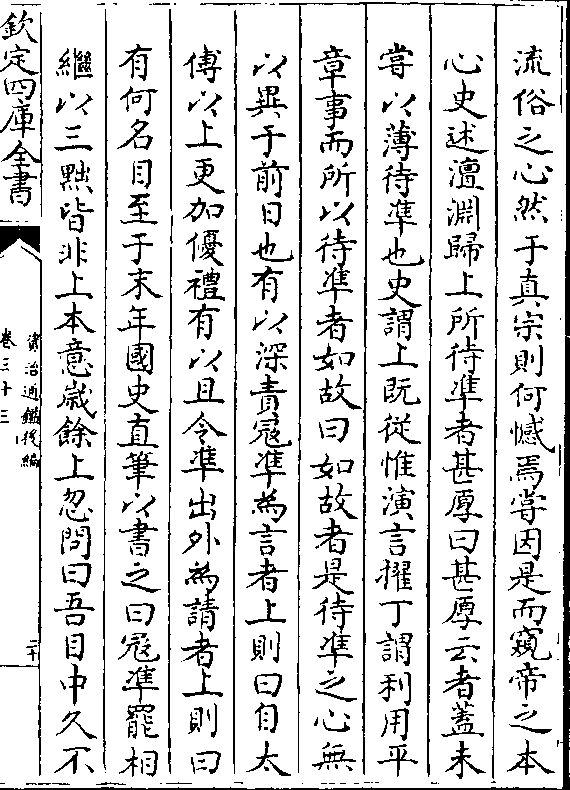 流俗之心然于真宗則何憾焉嘗因是而窺帝之本
心史述澶淵歸上所待凖者甚厚曰甚厚云者蓋未
嘗以薄待凖也史謂上既從惟演言擢丁謂利用平
章事而所以待凖者如故曰如故者是待凖之心無
以異于前日也有以深責寇凖為言者上則曰自太
傅以上更加優禮有以且令凖出外為請者上則曰
有何名目至于末年國史直筆以書之曰寇凖罷相
繼以三黜皆非上本意嵗餘上忽問曰吾目中久不
欽定四庫全書
資治通鑑後編
卷三十三
二十